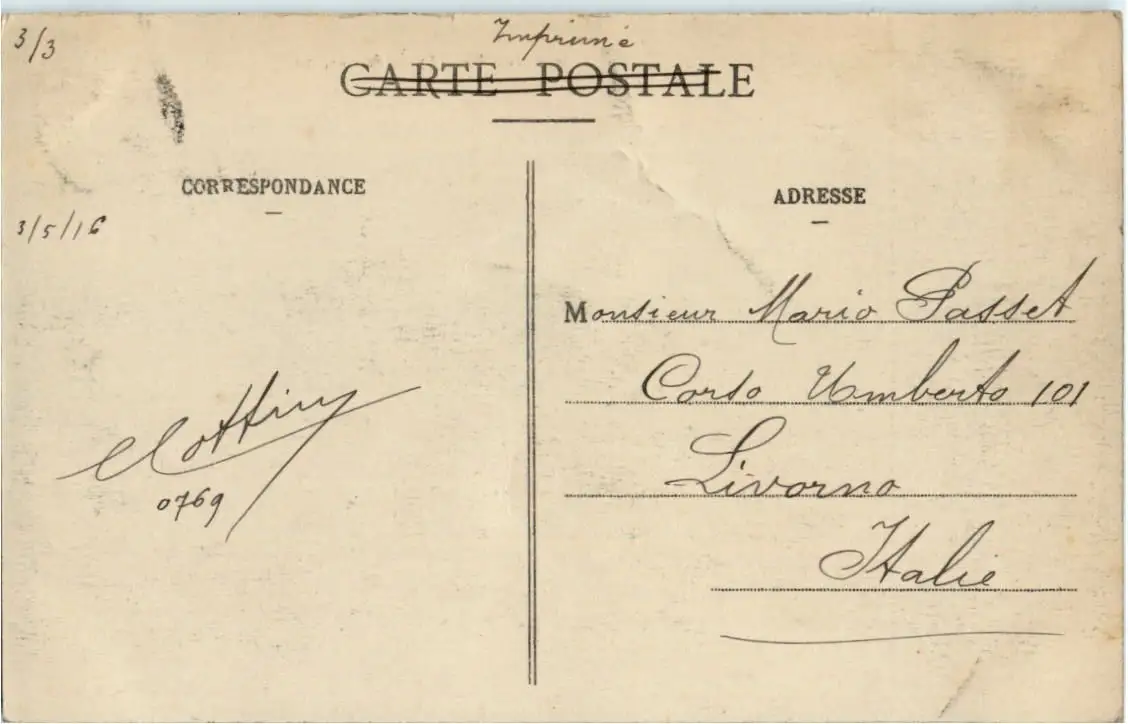 3/3
Imprimé
CARTE POSTALE
CORRESPONDANCE
ADRESSE
3/5/16
Monsieur Mario Passet
Corso Umberto 101
Livorno
Italie
Cottin
0769